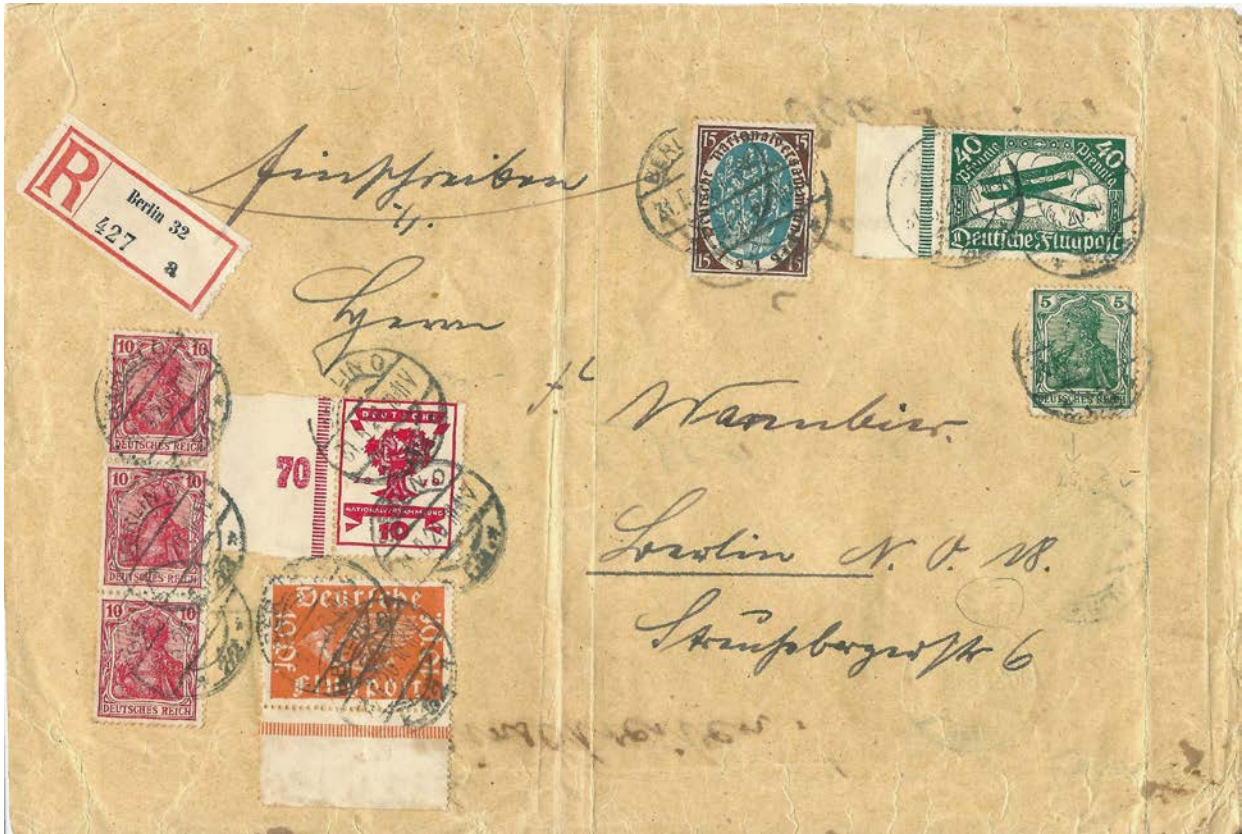 Einschreiben
R
Berlin 32
427
a
Herrn
Warmbier.
Berlin N. O. 18.
Strausbergerstr 6
15 15
Deutsche Nationalversammlung
1919
15 15
40 40
Pfennig Pfennig
Deutsche Flugpost
5 5
DEUTSCHES REICH
10 10
DEUTSCHES REICH
10 10
DEUTSCHES REICH
10 10
DEUTSCHES REICH
70
DEUTSCHE
NATIONALVERSAMMLUNG
10
Deutsche
10 Pf 10 Pf
Flugpost
BERLIN O